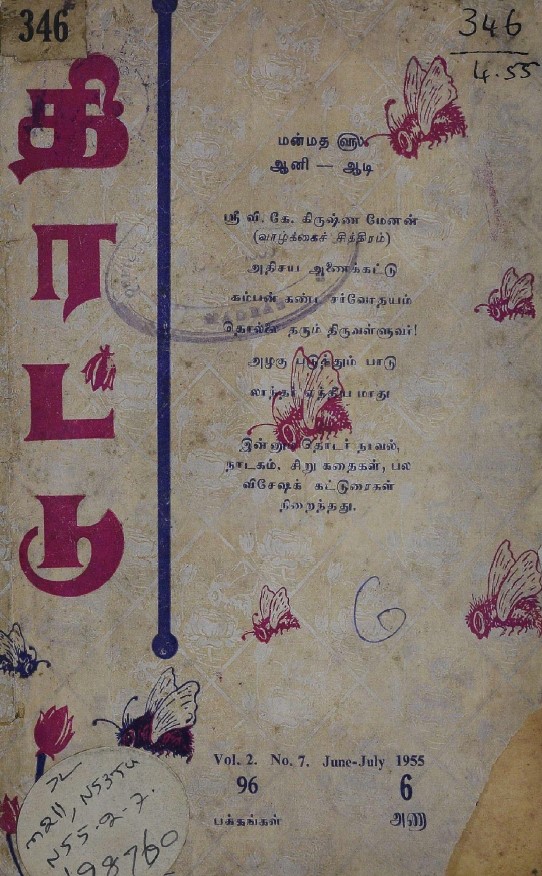 346
346
4.55
திரட்டு
மன்மத ௵
ஆனி — ஆடி
ஸ்ரீ வி. கே. கிருஷ்ண மேனன்
(வாழ்க்கைச் சித்திரம்)
அதிசய அணைக்கட்டு
கம்பன் கண்ட சர்வோதயம்
தொல்லை தரும் திருவள்ளுவர்!
அழகு படுத்தும் பாடு
லாந்தர் ஏந்திய மாது
இன்னும் தொடர் நாவல்,
நாடகம், சிறு கதைகள், பல
விசேஷக் கட்டுரைகள்
நிறைந்தது.
MADRAS
6
Vol. 2. No. 7. June-July 1955
96 6
பக்கங்கள் அணா
N55-2-7.
198760